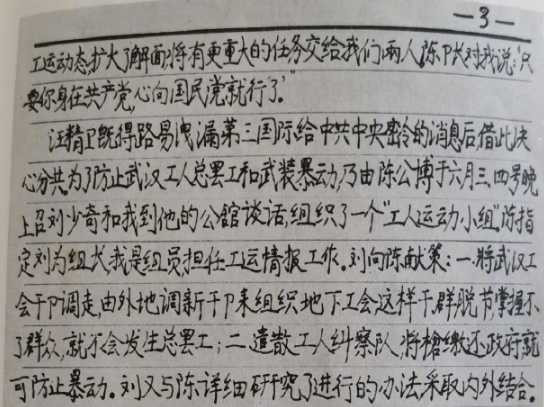 —3—
工运动态扩大了解面,将有更重大的任务交给我们两人,陈P长对我说:“只
要你身在共产党,心向国民党就行了。”
汪精卫既得路易洩漏第三国际给中共中央密令的消息后,借此决
心分共,为了防止武汉工人总罢工和武装暴动,乃由陈公博于六月三、四号晚
上召刘少奇和我到他的公馆谈话,组织了一个“工人运动小组”,陈指
定刘为组长,我是组员,担任工运情报工作。刘向陈献策:一.将武汉工
会干P调走,由外地调新干P来组织地下工会,这样干群脱节,掌握不
了群众,就不会发生总罢工;二.遣散工人纠察队,将槍缴还政府,就
可防止暴动。刘又与陈详细研究了进行的办法,采取内外结合。